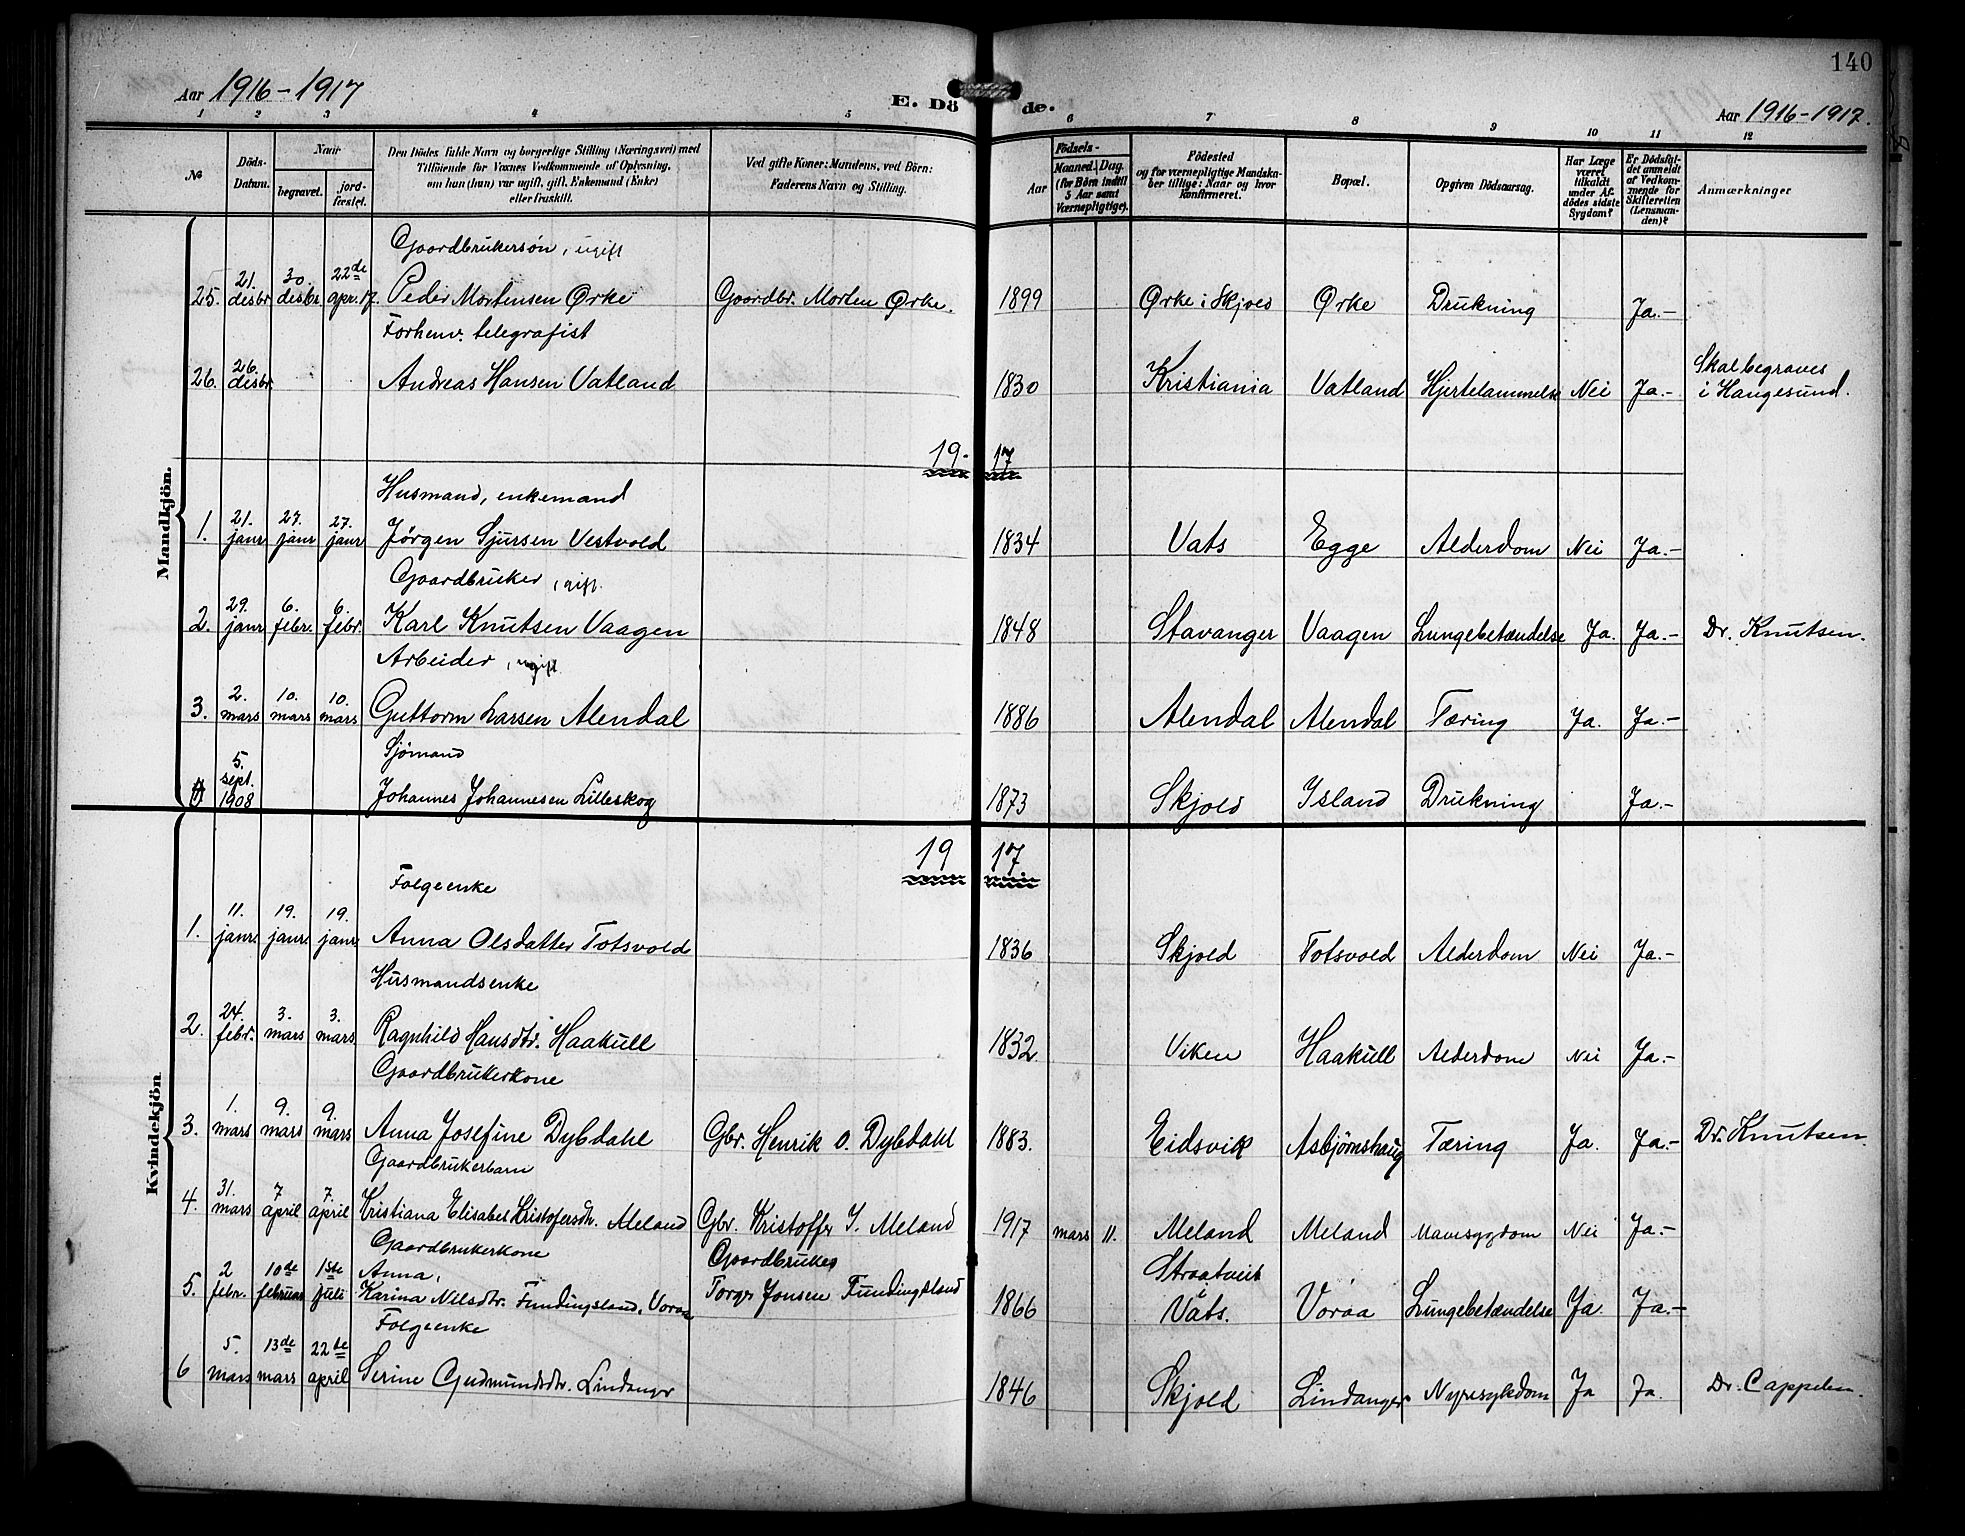 140
Aar 1916-1917
E. Dö de.
Aar 1916-1917.
1 2 3 4 5 6 7 8 9 10 11 12
№
Döds-Datum.
Naar
begravet.
jord-fæstet.
Den Dödes fulde Navn og borgerlige Stilling (Næringsvei) med
Tilföiende for Voxnes Vedkommende af Oplysning,
om han (hun) var ugift, gift, Enkemand (Enke)
eller fraskilt.
Ved gifte Koner: Mandens, ved Börn:
Faderens Navn og Stilling.
Födsels-
Aar
Maaned. Dag.
(for Börn indtil
5 Aar samt
Værnepligtige).
Födested
og for værnepligtige Mandska-
ber tillige: Naar og hvor
konfirmeret.
Bopæl.
Opgiven Dödsaarsag.
Har Læge
været
tilkaldt
under Af-
dödes sidste
Sygdom?
Er Dödsfal-
det anmeldt
af Vedkom-
mende for
Skifteretten
(Lensman-
den)?
Anmærkninger
Mandkjön.
Gaardbrukersøn, ugift
25. 21. desbr 30. desbr 22de apr. 17. Peder Mortensen Ørke Gaardbr. Morten Ørke. 1899 Ørke i Skjold Ørke Drukning Ja.-
Forhenv. telegrafist
26. 26. desbr. Andreas Hansen Vatland 1830 Kristiania Vatland Hjertelammelse Nei Ja.- Skal begraves
i Haugesund.
19- 17
Husmand, enkemand
1. 21. janr 27. janr 27. janr Jørgen Sjursen Vestvold 1834 Vats Egge Alderdom Nei Ja.-
Gaardbruker, gift.
2. 29. janr 6. febr. 6. febr. Karl Knutsen Vaagen 1848 Stavanger Vaagen Lungebetændelse Ja. Ja.- Dr. Knutsen.
Arbeider, ugift
3. 2. mars 10. mars 10. mars Guttorm Larsen Alendal 1886 Alendal Alendal Tæring Ja. Ja.-
Sjømand
5. sept. 1908 Johannes Johannesen Lilleskog 1873 Skjold Ysland Drukning Ja.-
Kvindekjön
19 17
Folgeenke
1. 11. janr. 19. janr. 19. janr. Anna Olsdatter Totsvold 1836 Skjold Totsvold Alderdom Nei Ja.-
Husmandsenke
2. 24. febr. 3. mars 3. mars Ragnhild Hansdtr. Haakull 1832 Viken Haakull Alderdom Nei Ja.-
Gaardbrukerkone
3. 1. mars 9. mars 9. mars Anna Josefine Dybdahl Gbr. Henrik O. Dybdahl 1883. Eidsvik Asbjørnshaug Tæring Ja. Ja.- Dr. Knutsen.
Gaardbrukerbarn
4. 31. mars 7 april 7. april Kristiana Elisabet Kristofersdtr. Meland Gbr. Kristoffer I. Meland 1917 mars 11. Meland Meland Mavesygdom Nei Ja.-
Gaardbrukerkone Gaardbruker Straatveit
Anna, i
5. 2 febr. 10de februar 1ste juli Karina Nilsdtr. Fundingsland, Voraa Torger Jonsen Fundingsland 1866 Vats. Voraa Lungebetændelse Ja Ja.-
Folgeenke
6 5. mars 13de mars 22de april Serine Gudmundsdtr. Lindanger 1846 Skjold Lindanger Nyresykdom Ja Ja. Dr. Cappelen.